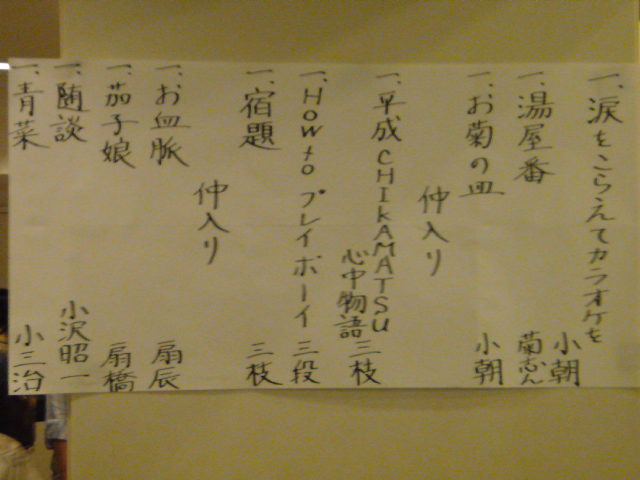 一、涙をこらえてカラオケを 小朝
一、湯屋番 菊志ん
一、お菊の皿 小朝
仲入り
一、平成CHIKAMATSU
心中物語 三枝
一、Howtoプレイボーイ 三段
一、宿題 三枝
仲入り
一、お血脈 扇辰
一、茄子娘 扇橋
一、随談 小沢昭一
一、青菜 小三治